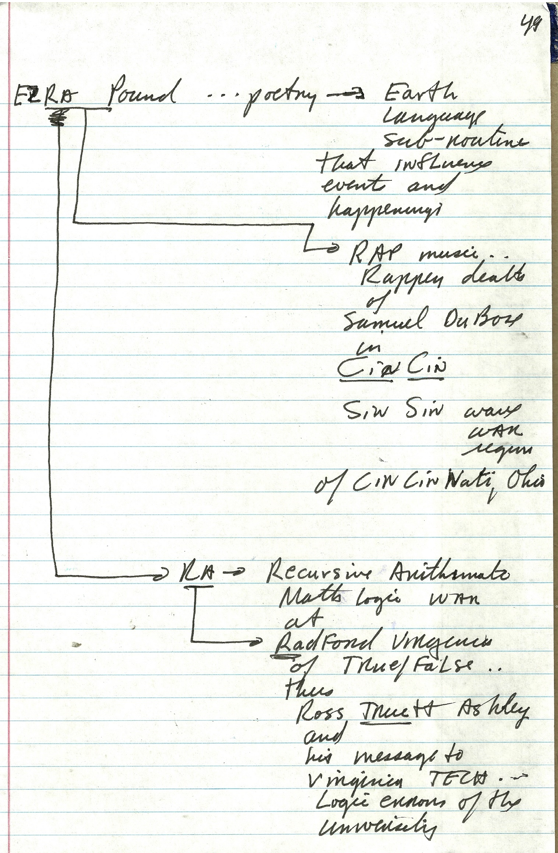 49
EZRA Pound ... poetry → Earth
Language
sub-routine
that influence
events and
happenings
RAP music ..
Rapper death
of
Samuel DuBose
in
Cin Cin
Sin Sin wave
WAR
region
of CinCinNati, Ohio
RA → Recursive Arithmatc
Math Logic WAR
at
RadFord Virginia
of TRue/False ..
thus
Ross TRuett Ashley
and
his message to
Virginia TECH ...
Logic errors of the
university